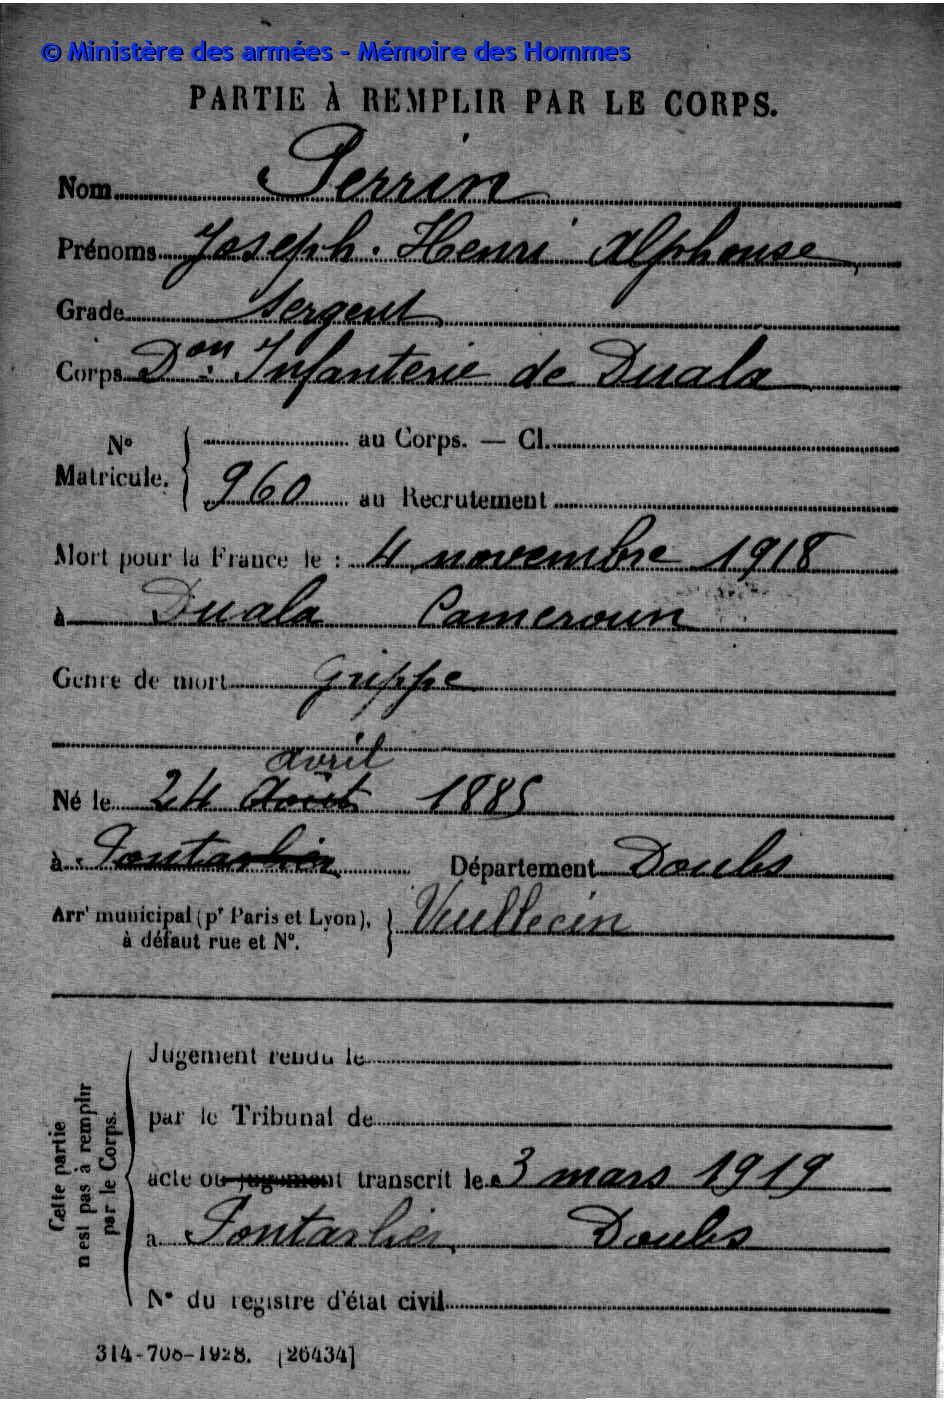 © Ministère des armées - Mémoire des Hommes
PARTIE À REMPLIR PAR LE CORPS.
Nom Perrin
Prénoms Joseph. Henri Alphonse
Grade Sergent
Corps Don. Infanterie de Duala
N° Matricule. au Corps. — Cl.
960 au Recrutement
Mort pour la France le : 4 novembre 1918
à Duala Cameroun
Genre de mort grippe
avril
Né le 24 Août 1885
à Pontarlier Département Doubs
Arrt municipal (pr Paris et Lyon), Vuillecin
à défaut rue et N°.
Cette partie
n'est pas à remplir
par le Corps.
Jugement rendu le
par le Tribunal de
acte ou jugement transcrit le 3 mars 1919
à Pontarlier, Doubs
N° du registre d'état civil
314-708-1928. [26434]